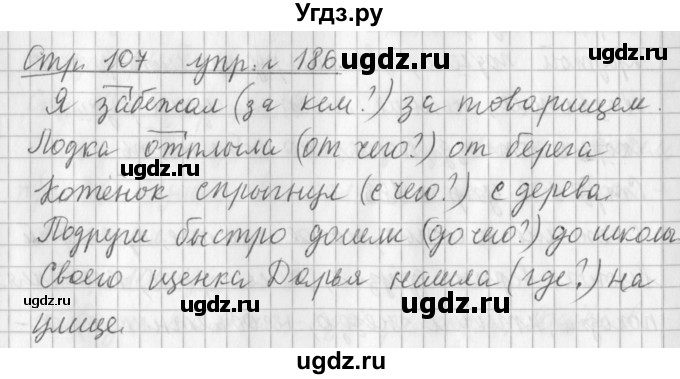 Угдз.ру
Стр. 107 упр. 186. ugdz.ru
Я забежал (за кем?) за товарищем.
ugdz.ru
Лодка отплыла (от чего?) от берега
ugdz.ru
Котёнок спрыгнул (с чего?) с дерева.
ugdz.ru
Подруги быстро дошли (до чего?) до школы
Своего щенка Дарья нашла (где?) на
ugdz.ru ugdz.ru
улице.
ugdz.ru
ugdz.ru